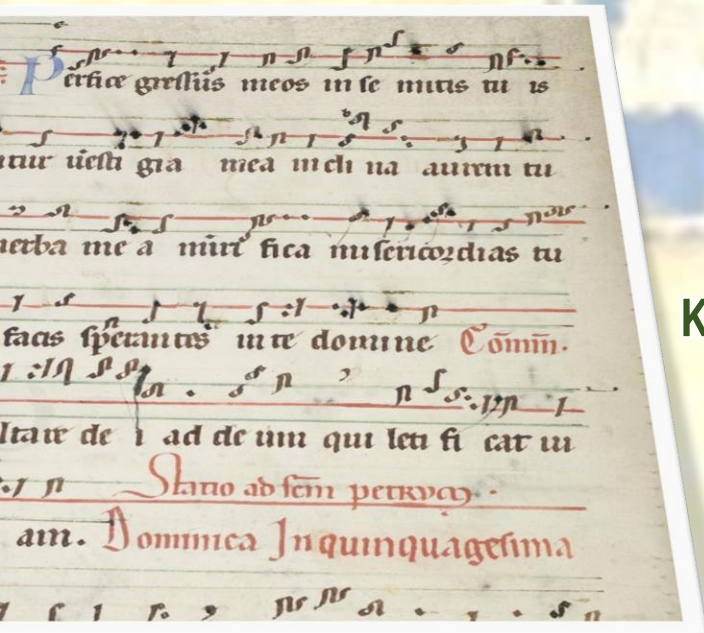 Perfice gressus meos in se mitis tu is
ntur uesti gia mea in cli na aurem tu
uerba me a miri fica misericordias tu
facis sperantes in te domine Cōmū.
ltare de i ad de um qui leti fi cat iu
Statio ad scm petrum.
am. Dominica In quinquagesima
K